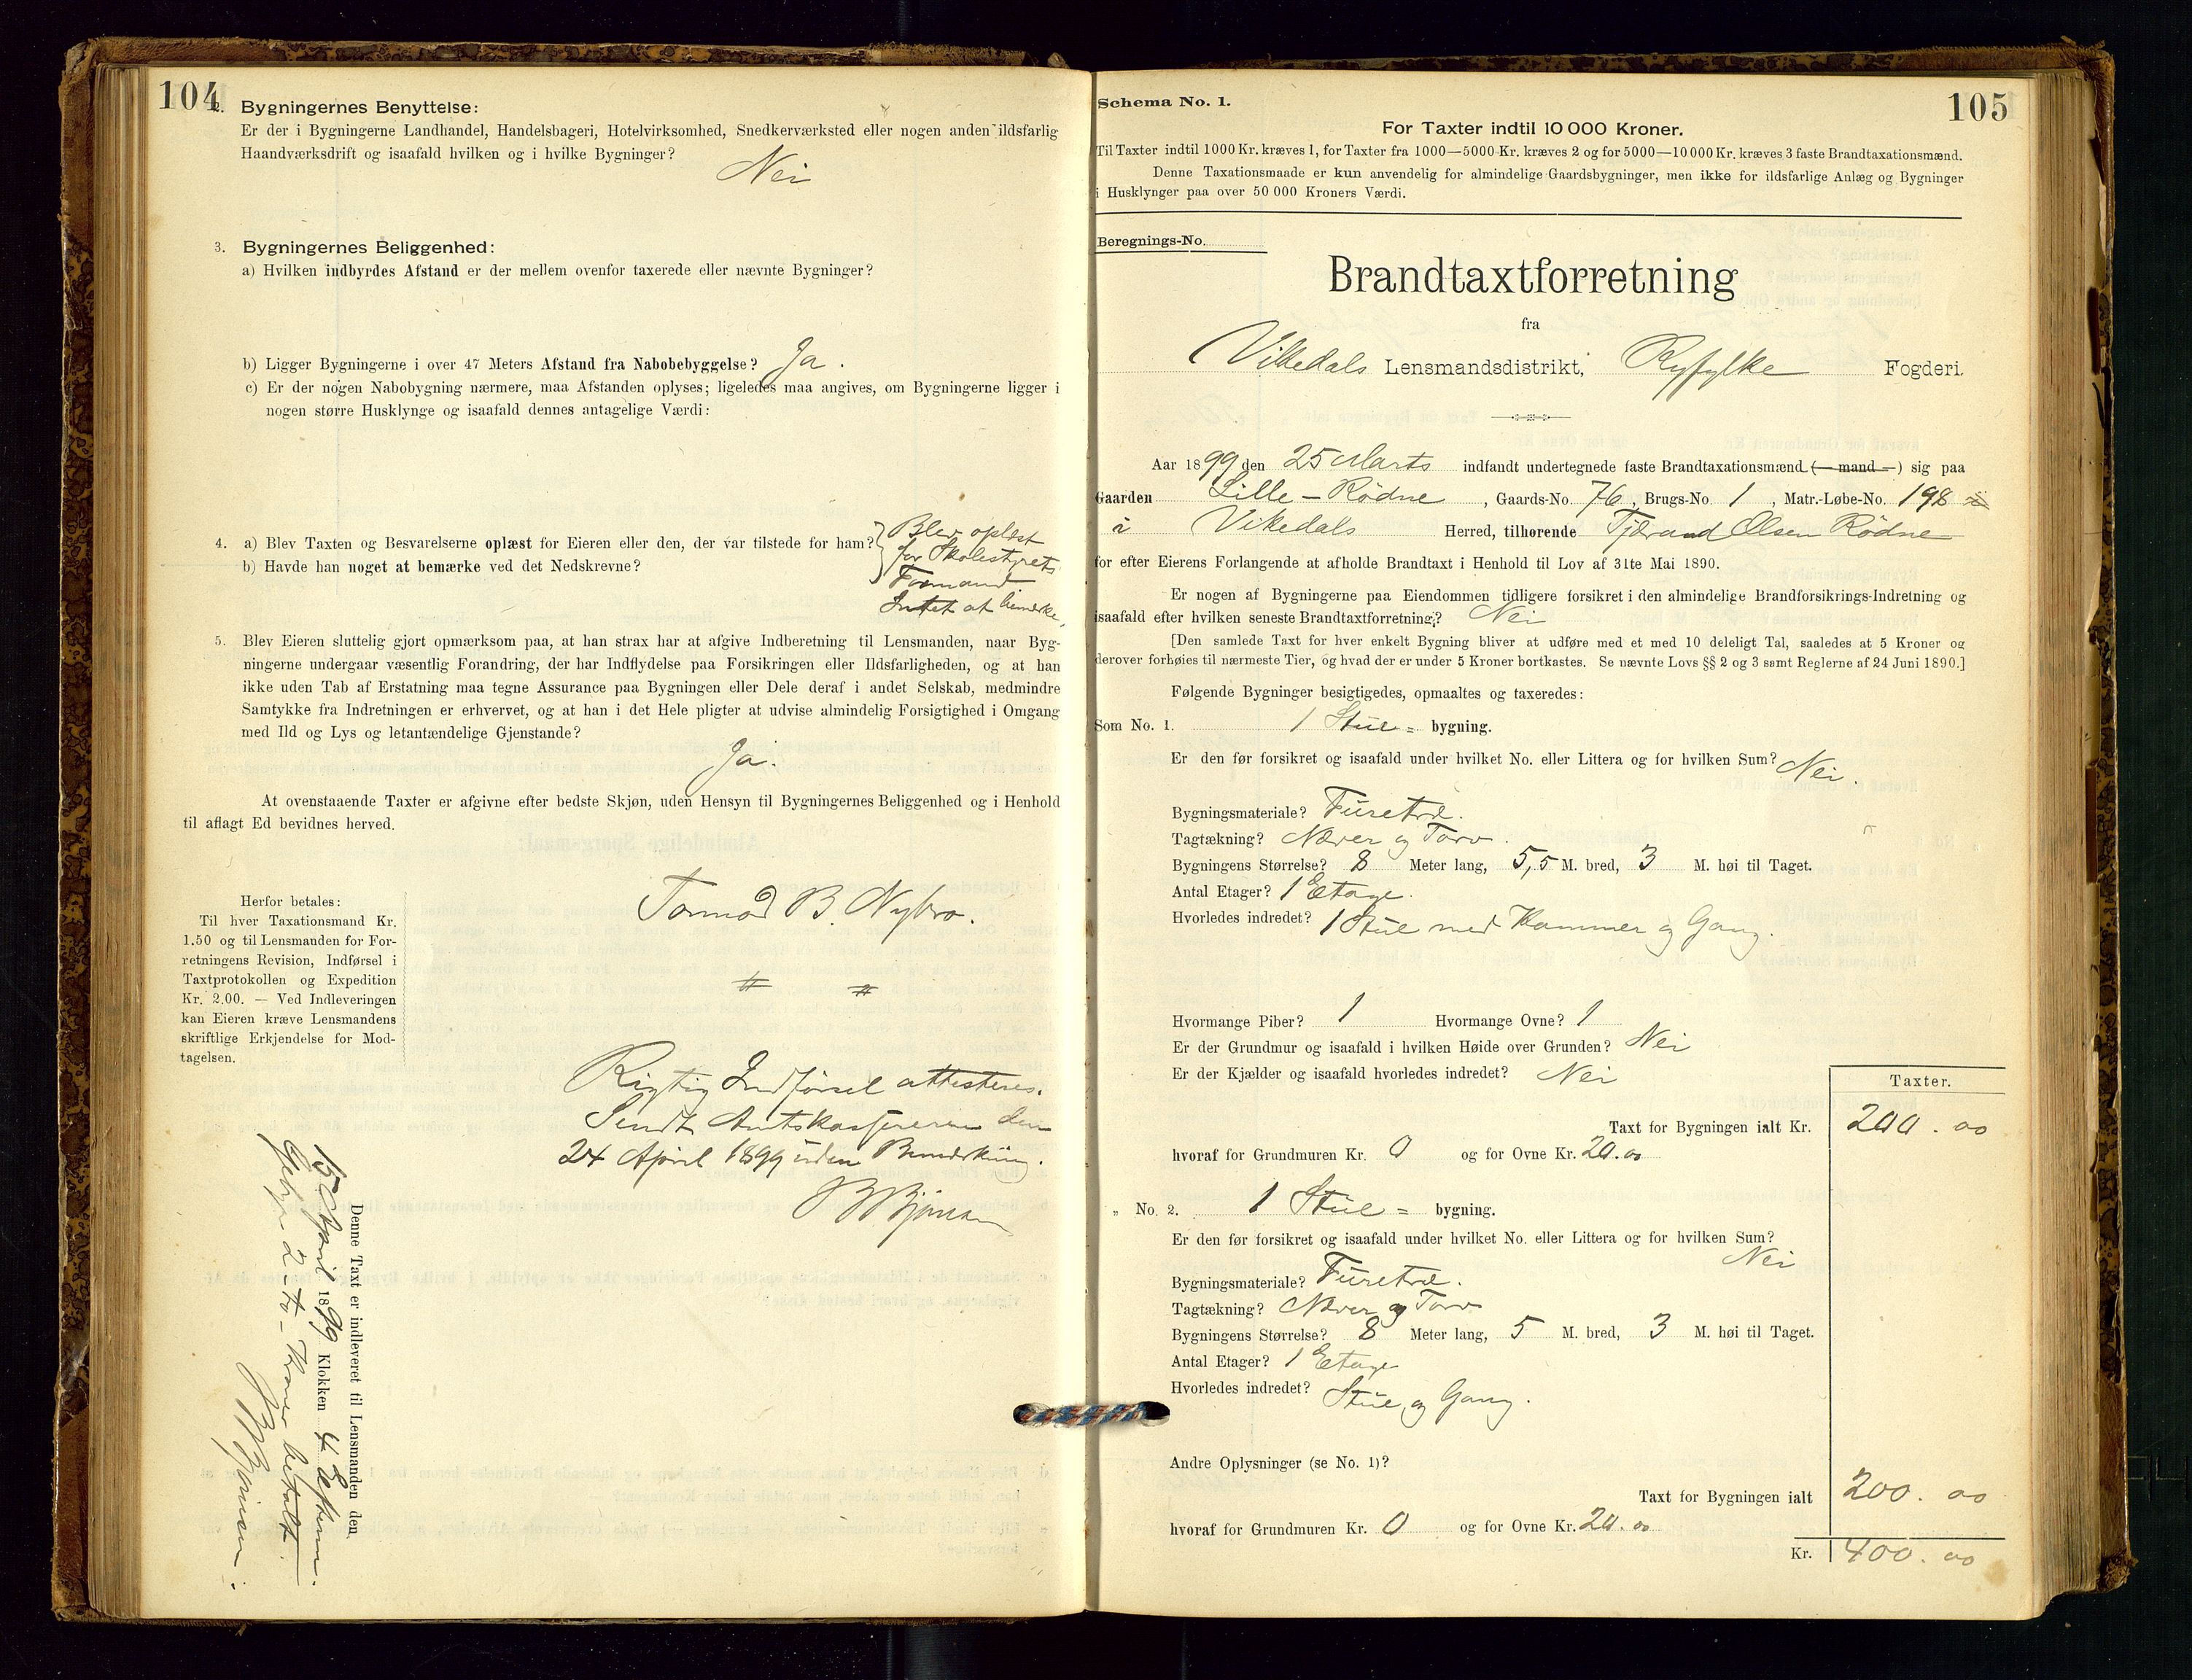 104
2. Bygningernes Benyttelse:
Er der i Bygningerne Landhandel, Handelsbageri, Hotelvirksomhed, Snedkerværksted eller nogen anden ildsfarlig
Haandværksdrift og isaafald hvilken og i hvilke Bygninger?
Nei
3. Bygningernes Beliggenhed:
a) Hvilken indbyrdes Afstand er der mellem ovenfor taxerede eller nævnte Bygninger?
b) Ligger Bygningerne i over 47 Meters Afstand fra Nabobebyggelse? Ja.
c) Er der nogen Nabobygning nærmere, maa Afstanden oplyses; ligeledes maa angives, om Bygningerne ligger i
nogen større Husklynge og isaafald dennes antagelige Værdi:
4. a) Blev Taxten og Besvarelserne oplæst for Eieren eller den, der var tilstede for ham?
b) Havde han noget at bemærke ved det Nedskrevne?
Blev oplæst
for Skolestyrets
Formand
Intet at bemærke.
5. Blev Eieren sluttelig gjort opmærksom paa, at han strax har at afgive Indberetning til Lensmanden, naar Byg-
ningerne undergaar væsentlig Forandring, der har Indflydelse paa Forsikringen eller Ildsfarligheden, og at han
ikke uden Tab af Erstatning maa tegne Assurance paa Bygningen eller Dele deraf i andet Selskab, medmindre
Samtykke fra Indretningen er erhvervet, og at han i det Hele pligter at udvise almindelig Forsigtighed i Omgang
med Ild og Lys og letantændelige Gjenstande?
Ja.
At ovenstaaende Taxter er afgivne efter bedste Skjøn, uden Hensyn til Bygningernes Beliggenhed og i Henhold
til aflagt Ed bevidnes herved.
Herfor betales:
Til hver Taxationsmand Kr.
1.50 og til Lensmanden for For-
retningens Revision, Indførsel i
Taxtprotokollen og Expedition
Kr. 2.00. — Ved Indleveringen
kan Eieren kræve Lensmandens
skriftlige Erkjendelse for Mod-
tagelsen.
Tormod B. Nybro.
Rigtig Indførsel attesteres.
Sendt Amtskassereren den
24 April 1899 uden Bemerkning.
B Bjørnsen
Denne Taxt er indleveret til Lensmanden den
15 April 1899 Klokken 4 Efterm.
Gebyr 2 - to - Kroner betalt.
B Bjørnsen.
105
Schema No. 1.
For Taxter indtil 10 000 Kroner.
Til Taxter indtil 1000 Kr. kræves 1, for Taxter fra 1000—5000 Kr. kræves 2 og for 5000—10 000 Kr. kræves 3 faste Brandtaxationsmænd.
Denne Taxationsmaade er kun anvendelig for almindelige Gaardsbygninger, men ikke for ildsfarlige Anlæg og Bygninger
i Husklynger paa over 50 000 Kroners Værdi.
Beregnings-No.
Brandtaxtforretning
fra
Vikedals Lensmandsdistrikt, Ryfylke Fogderi.
Aar 1899 den 25 Marts indfandt undertegnede faste Brandtaxationsmænd (— mand —) sig paa
Gaarden Lille-Rødne, Gaards-No. 76, Brugs-No. 1, Matr.-Løbe-No. 198
i Vikedals Herred, tilhørende Tjærand Olsen Rødne
for efter Eierens Forlangende at afholde Brandtaxt i Henhold til Lov af 31te Mai 1890.
Er nogen af Bygningerne paa Eiendommen tidligere forsikret i den almindelige Brandforsikrings-Indretning og
isaafald efter hvilken seneste Brandtaxtforretning? Nei
[Den samlede Taxt for hver enkelt Bygning bliver at udføre med et med 10 deleligt Tal, saaledes at 5 Kroner og
derover forhøies til nærmeste Tier, og hvad der er under 5 Kroner bortkastes. Se nævnte Lovs §§ 2 og 3 samt Reglerne af 24 Juni 1890.]
Følgende Bygninger besigtigedes, opmaaltes og taxeredes:
Som No. 1. 1 Stue= bygning.
Er den før forsikret og isaafald under hvilket No. eller Littera og for hvilken Sum? Nei.
Bygningsmateriale? Furetræ.
Tagtækning? Næver og Torv.
Bygningens Størrelse? 8 Meter lang, 5,5 M. bred, 3 M. høi til Taget.
Antal Etager? 1 Etage.
Hvorledes indredet? 1 Stue med Kammer og Gang.
Hvormange Piber? 1 Hvormange Ovne? 1
Er der Grundmur og isaafald i hvilken Høide over Grunden? Nei
Er der Kjælder og isaafald hvorledes indredet? Nei
Taxter.
Taxt for Bygningen ialt Kr. 200.00
hvoraf for Grundmuren Kr. 0 og for Ovne Kr. 20.00
„ No. 2. 1 Stue= bygning.
Er den før forsikret og isaafald under hvilket No. eller Littera og for hvilken Sum?
Nei
Bygningsmateriale? Furetræ.
Tagtækning? Næver og Torv
Bygningens Størrelse? 8 Meter lang, 5 M. bred, 3 M. høi til Taget.
Antal Etager? 1 Etage
Hvorledes indredet? Stue og Gang.
Andre Oplysninger (se No. 1)?
Taxt for Bygningen ialt 200.00
hvoraf for Grundmuren Kr. 0 og for Ovne Kr. 20.00
Kr. 400.00